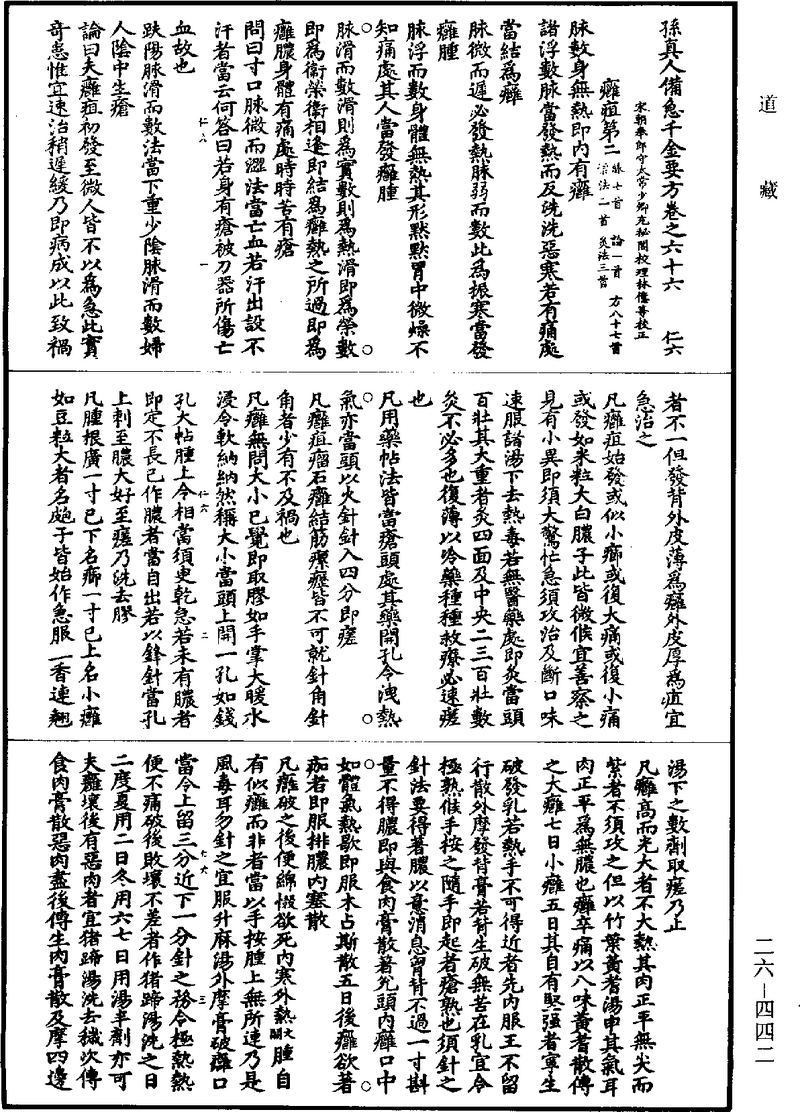 道藏
孫真人備急千金要方卷之六十六 仁六
宋朝奉郎守太常少卿充秘閣校理林億等校正
癰疽第二 脉七首 論一首 方八十七首
㴞法一首 灸法三首
脉數身無熱即內有癰
諸浮數脉當發熱而反洗洗惡寒若有痛處
當結為癰
脉微而遲必發熱脉弱而數此為振寒當發
癰腫
脉浮而數身體無熱其形默默胃中微燥不
知痛處其人當發癰腫
脉滑而數滑則為實數則為熱滑即為榮數
即為衛榮衛相逢即結為癰熱之所過即為
癰膿身體有痛處時時苦有瘡
問曰寸口脉微而澀法當亡血若汗出設不
汗者當云何答曰若身有瘡被刀器所傷亡
仁六 一
血故也
趺陽脉滑而數法當下重少陰脉滑而數婦
人陰中生瘡
論曰夫癰疽初發至微人皆不以為急此實
奇患惟宜速治稍遲緩乃即病成以此致禍
者不一但發背外皮薄為癰外皮厚為疽宜
急治之
凡癰疽始發或似小癤或復大痛或復小痛
或發如米粒大白膿子此皆微候宜善察之
見有小異即須大驚忙急須攻治及斷口味
速服諸湯下去熱毒若無醫藥處即灸當頭
百壯其大重者灸四面及中央二三百壯數
灸不必多也復薄以冷藥種種救療必速瘥
也
凡用藥帖法皆當瘡頭處其藥開孔令洩熱
氣亦當頭以火針針入四分即瘥
凡癰疽瘤石癰結筋瘰癧皆不可就針角針
角者少有不及禍也
凡癰無問大小已覺即取膠如手掌大暖水
浸令軟納納然稱大小當頭上開一孔如錢
仁六 二
孔大帖腫上令相當須臾乾急若未有膿者
即定不長已作膿者當自出若以鋒針當孔
上刺至膿大好至瘥乃洗去膠
凡腫根廣一寸已下名癤一寸已上名小癰
如豆粒大者名皰子皆始作急服一香連翹
湯下之數劑取瘥乃止
凡癰高而光大者不大熱其肉正平無尖而
紫者不須攻之但以竹葉黃耆湯申其氣耳
肉正平為無膿也癰卒痛以八味黃耆散傅
之大癰七日小癰五日其自有堅强者寧生
破發乳若熱手不可得近者先內服王不留
行散外摩發背膏若背生破無苦在乳宜令
極熟候手按之隨手即起者瘡熟也須針之
針法要得著膿以意消息胷背不過一寸斟
量不得膿即與食肉膏散著兌頭內癰口中
如體氣熱歇即服木占斯散五日後癰欲著
痂者即服排膿內塞散
凡癰破之後便綿惙欲死內寒外熱文闕腫自
有似癰而非者當以手按腫上無所連乃是
風毒耳勿針之宜服升麻湯外摩膏破癰口
七六 三
當令上留三分近下一分針之務令極熱熱
便不痛破後敗壞不差者作猪蹄湯洗之日
二度夏用二日冬用六七日用湯半劑亦可
夫癰壞後有惡肉者宜猪蹄湯洗去穢次傅
食肉膏散惡肉盡後傅生肉膏散及摩四邊
二六－四四二